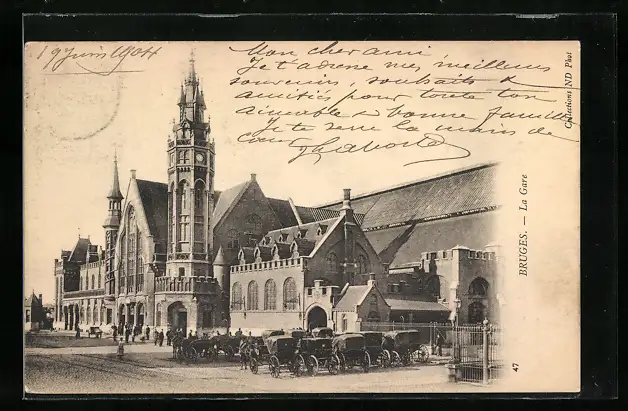 19 Juin 1904
Mon cher ami
Je t'adresse mes meilleurs
souvenirs, souhaits et
amitiés pour toute ton
aimable et bonne famille
Je te serre la main de
coeur
Collections ND Phot
BRUGES. — La Gare
47